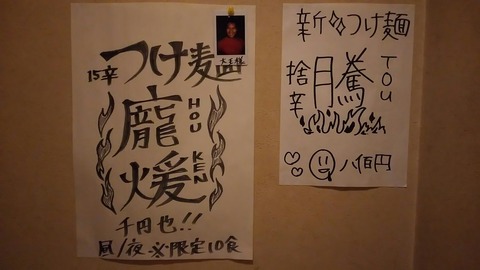 大王様
15辛 つけ麺
龐煖
HOU KEN
千円也!!
昼/夜 ※限定10食
新つけ麺
捨辛
騰
TOU
八佰円